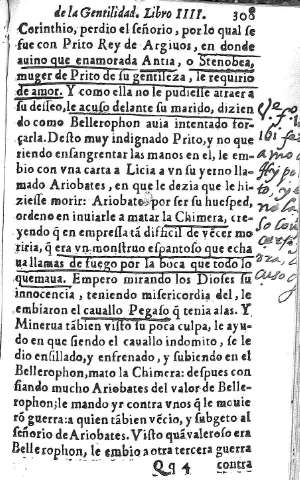 de la Gentilidad. Libro IIII. 308
Corinthio, perdio el señorio, por lo qual se
fue con Prito Rey de Argiuos, en donde
auino que enamorada Antia, o Stenobea,
muger de Prito de su gentileza, le requirio
de amor. Y como ella no le pudiesse atraer a
su desseo, le acuso delante su marido, dizien
do como Bellerophon auia intentado for-
çarla. Desto muy indignado Prito, y no que
riendo ensangrentar las manos en el, le em-
bio con vna carta a Licia a vn su yerno lla-
mado Ariobates, en que le dezia que le hi-
ziesse morir: Ariobate por ser su huesped,
ordeno en inuiarle a matar la Chimera, cre-
yendo q̃ en empressa tã dificil de vẽcer mo
riria, q̃ era vn monstruo espantoso que echa
ua llamas de fuego por la boca que todo lo
quemaua. Empero mirando los Dioses su
innocencia, teniendo misericordia del, le
embiaron el cauallo Pegaso q̃ tenia alas. Y
Minerua tãbien visto su poca culpa, le ayu-
do en que siendo el cauallo indomito, se le
dio ensillado, y enfrenado, y subiendo en el
Bellerophon, mato la Chimera: despues con
fiando mucho Ariobates del valor de Belle-
rophon; le mando yr contra vnos q̃ le mouie
rõ guerra: a quien tãbien vẽcio, y subgeto al
señorio de Ariobates. Visto quã valeroso era
Bellerophon, le embio a otra tercera guerra
Qq 4 contra